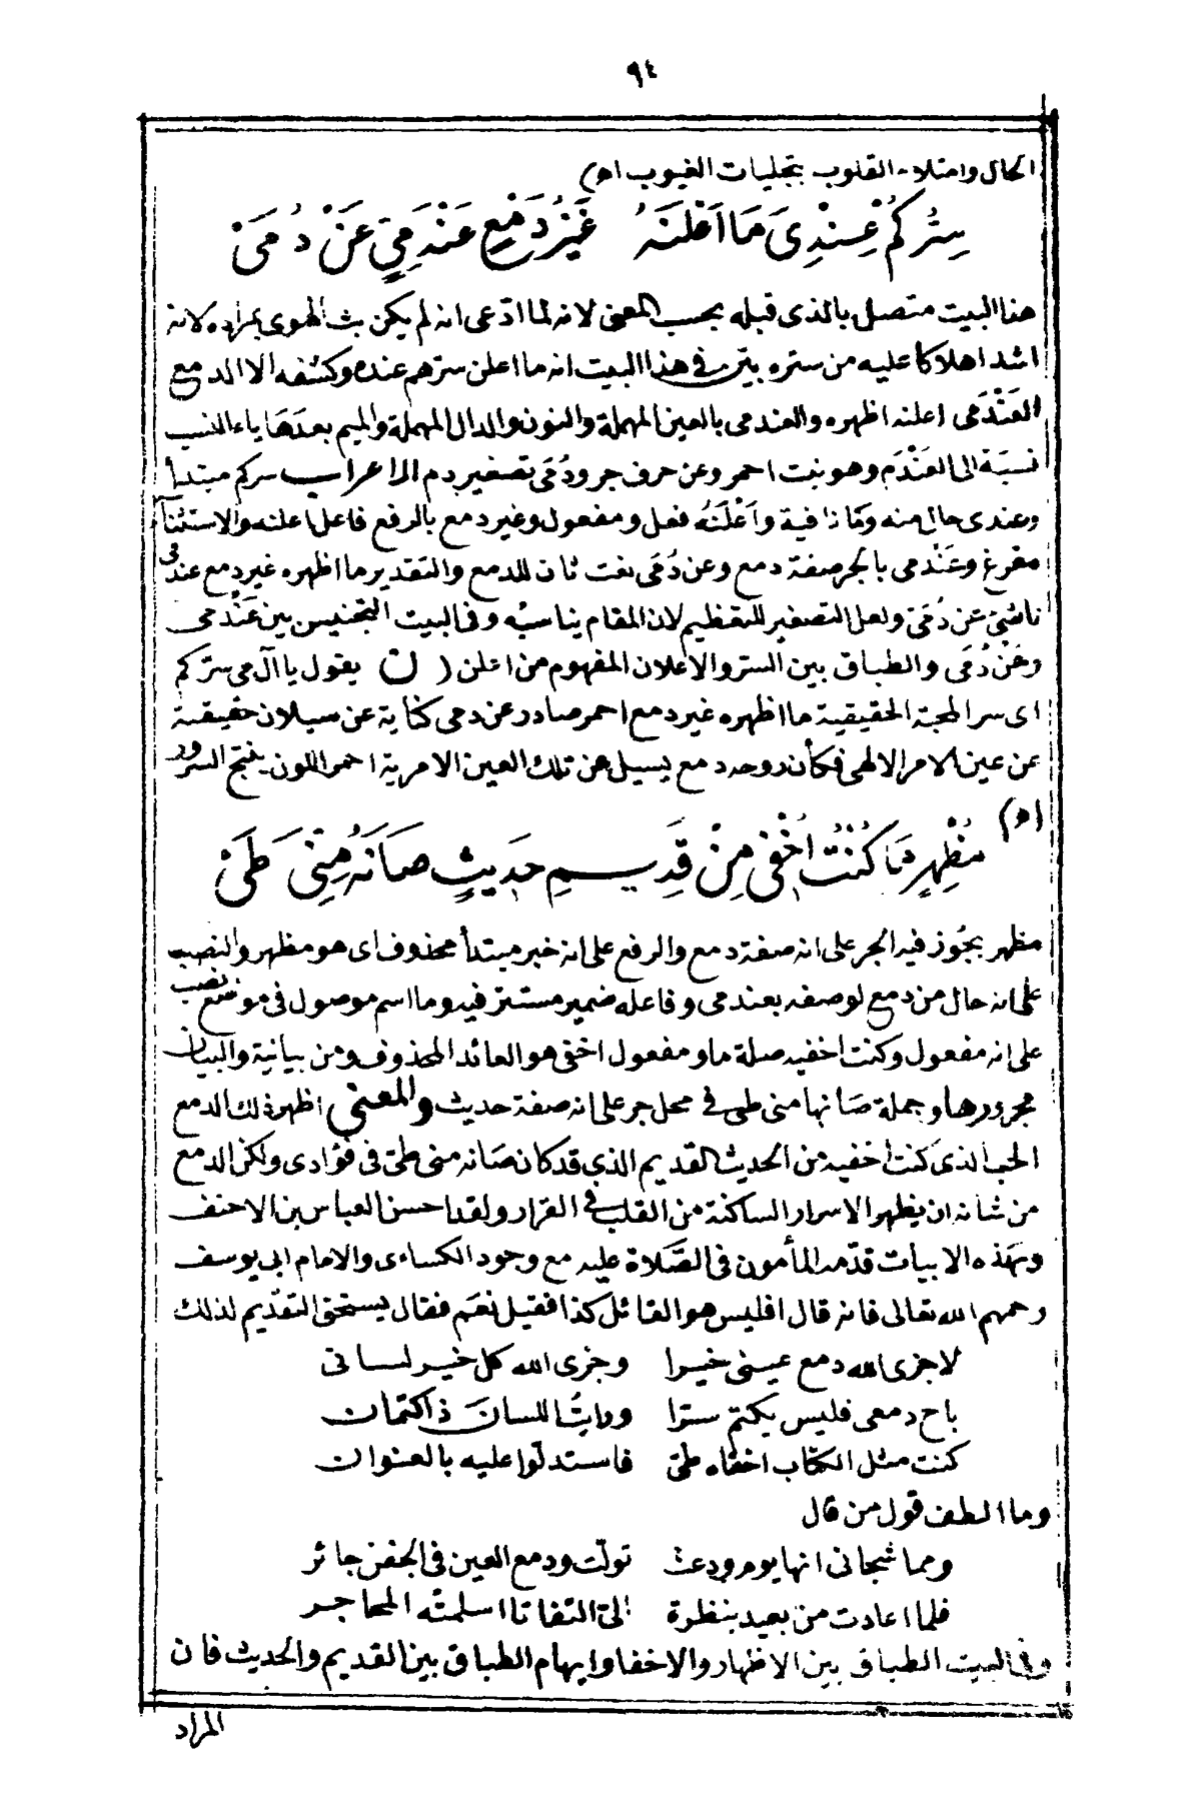 ٩٤
الحال وامتلاء القلوب بتجليات الغيوب اه)
سِتْرُكُمْ عِنْدِىَ مَا اَعْلَنَهُ غَيْرُ دَمْعٍ عَنْدَمِىٍّ عَنْ دُمَىْ
هذا البيت متصل بالذى قبله بحسب المعنى لانه لما ادّعى انه لم يكن بث الهوى بمراده لانه
اشد اهلاكا عليه من ستره بيّن فى هذا البيت انه ما اعلن سترهم عنده وكشفه الا الدمع
العَنْدَمى اعلنه اظهره والعندمى بالعين المهملة والنون والدال المهملة والميم بعدها ياء النسب
نسبة الى العَنْدَم وهو نبت احمر وعن حرف جر ودُمَى تصغير دم الاعراب ستركم مبتدأ
وعندى حال منه وما نافية واَعْلَنَهُ فعل ومفعول وغير دمع بالرفع فاعل اعلنه والاستثناء
مفرغ وعَنْدمى بالجر صفة دمع وعن دُمَى نعت ثان للدمع والتقدير ما اظهره غير دمع عندمى
ناشئ عن دُمَى ولعل التصغير للتعظيم لان المقام يناسبه وفى البيت التجنيس بين عَنْدمى
وعَنْ دُمَى والطباق بين الستر والاعلان المفهوم من اعلن (ن يقول يا آل مى ستركم
اى سر المحبة الحقيقية ما اظهره غير دمع احمر صادر عن دمى كناية عن سيلان حقيقته
عن عين الامر الالهى فكأن روحه دمع يسيل عن تلك العين الامرية احمر اللون ينتج السرور
اه)
مُظْهِرٍ مَا كُنْتُ اُخْفِى مِنْ قَدِيمِ حَدِيثٍ صَانَهُ مِنِّى طَىْ
مظهر يجوز فيه الجر على انه صفة دمع والرفع على انه خبر مبتدأ محذوف اى هو مظهر والنصب
على انه حال من دمع لوصفه بعندمى وفاعله ضمير مستتر فيه وما اسم موصول فى موضع نصب
على انه مفعول وكنت اخفيه صلة ما ومفعول اخفى هو العائد المحذوف ومن بيانية والبيان
مجرورها وجملة صانها منى طى فى محل جر على انه صفة حديث والمعنى اظهر ذلك الدمع
الحب الذى كنت اخفيه من الحديث القديم الذى قد كان صانه منى طىّ فى فؤادى ولكن الدمع
من شانه ان يظهر الاسرار الساكنة من القلب فى القرار ولقد احسن العباس بن الاحنف
وبهذه الابيات قدّمه المأمون فى الصّلاة عليه مع وجود الكساءى والامام ابى يوسف
رحمهم الله تعالى فانه قال افليس هو القائل كذا فقيل نعم فقال يستحق التقديم لذلك
لا جزى الله دمع عينى خيرا وجزى الله كل خير لسانى
باح دمعى فليس يكتم سترا ورايتُ اللسانَ ذا كتمان
كنت مثل الكتاب اخفاه طىّ فاستدلّوا عليه بالعنوان
وما الطف قول من قال
ومما شجانى انها يوم ودعت تولّت ودمع العين فى الجفن حائر
فلما اعادت من بعيد بنظرة الىّ التفاتا اسلمته المحاجر
وفى البيت الطباق بين الاظهار والاخفا وايهام الطباق بين القديم والحديث فان
المراد